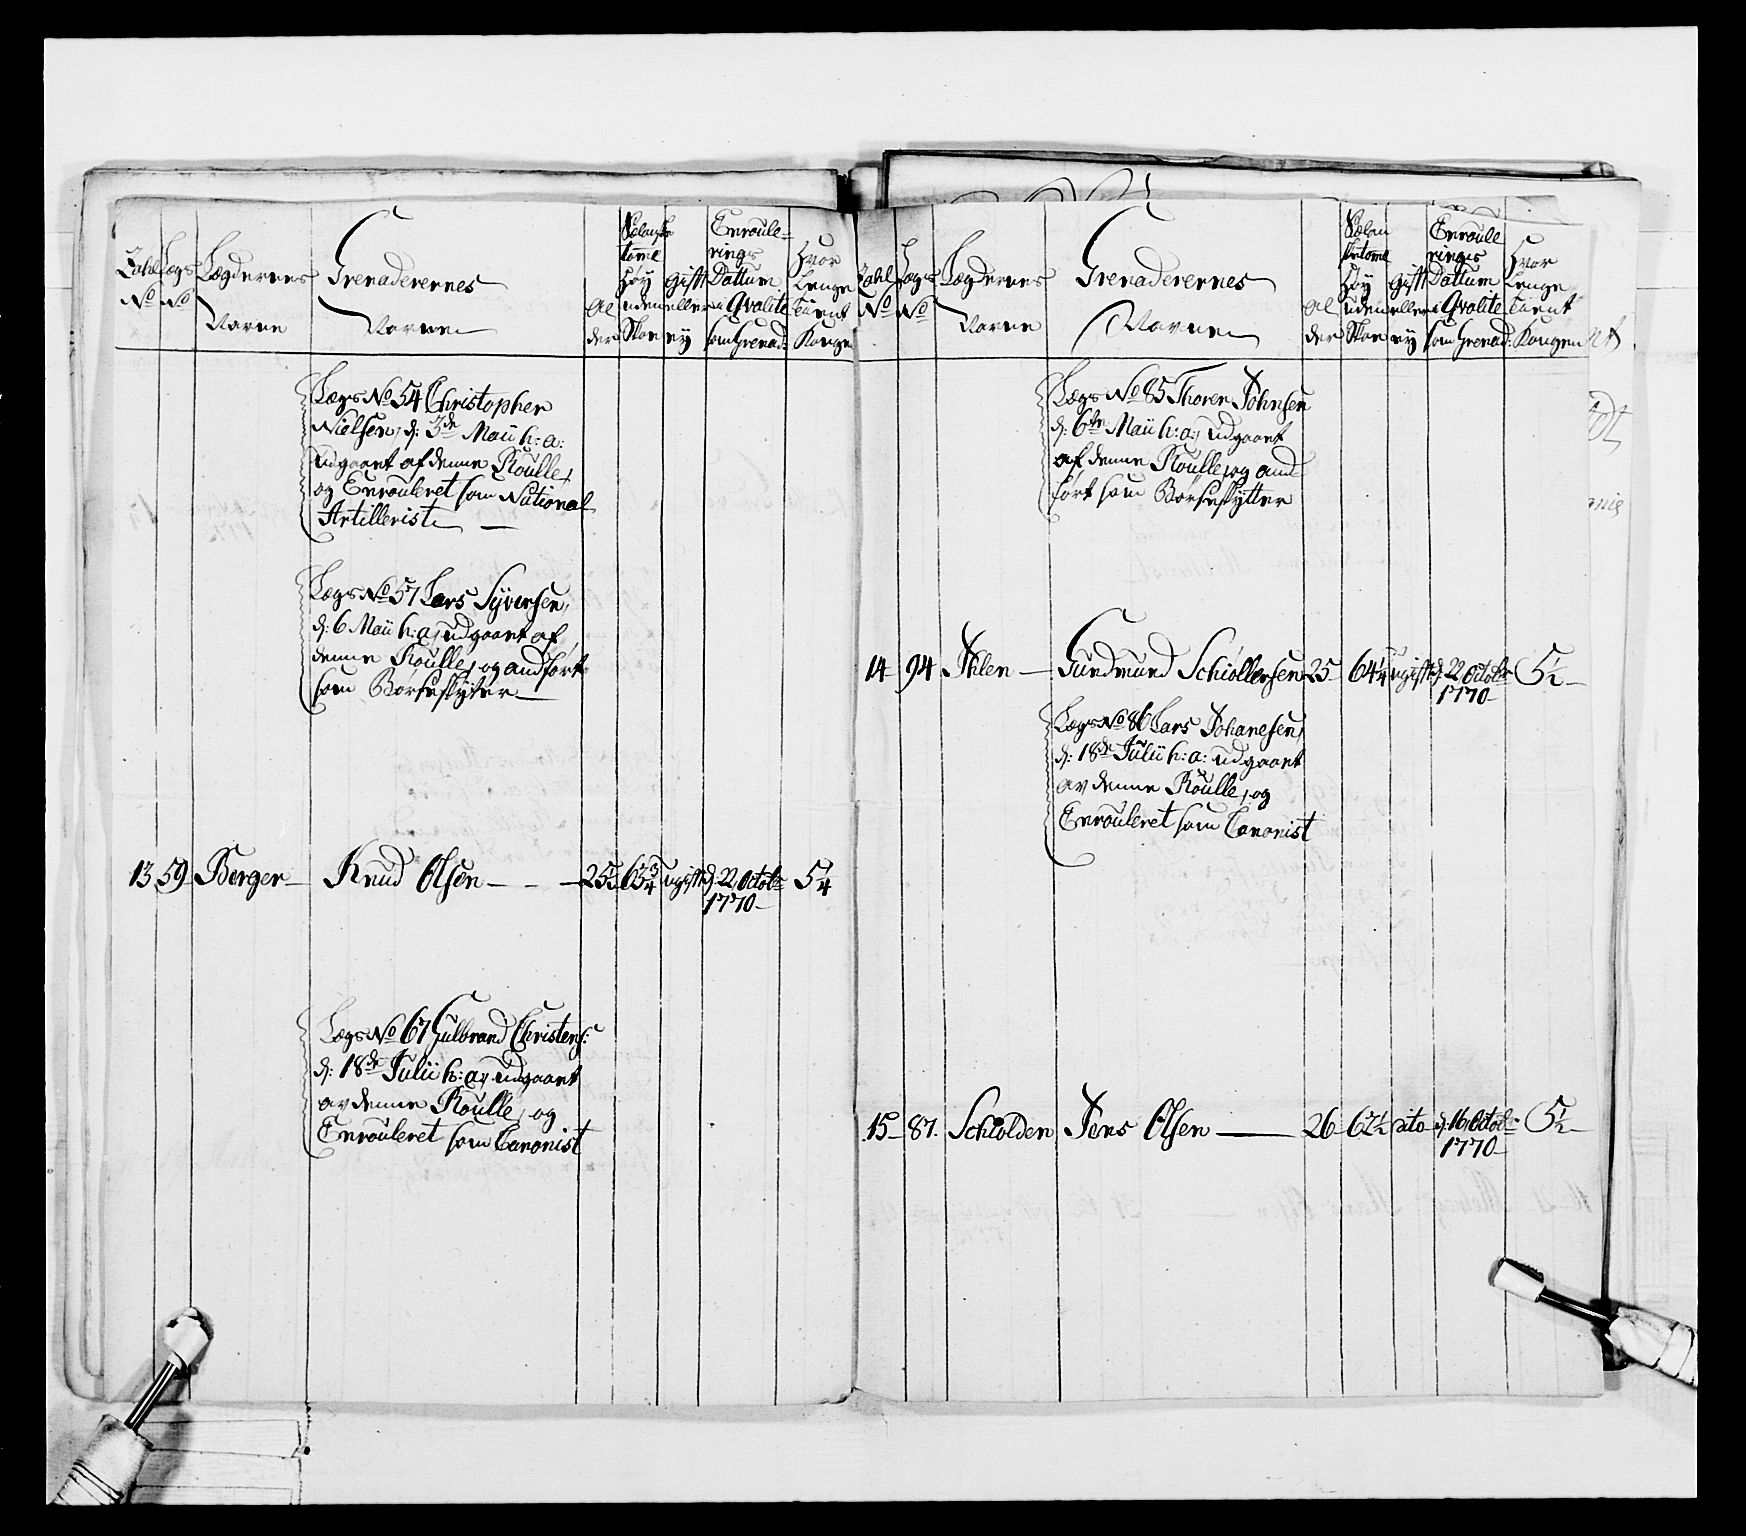 Zahl No
Lægs No
Lægdernes Navne
Grenaderernes Navne
Alder
Sælandske tomme Høy uden Skoe
Gift eller ey
Enroulerings Dattum i Qvalite som Grenad:
Hvor Lenge Tient Kongen
Lægs No 54 Christopher
Nielsen, d: 3de Maii h: a:
udgaaet af denne Roulle,
og Enrouleret som National
Artillerist
Lægs No 57 Lars Syversen,
d: 6 Maii h: a, udgaaet af
denne Roulle, og andført
som Børseskytter
13 59 Berger Knud Olsen 25 63 3/4 ugift d. 22 Octobr 1770 5 1/4
Lægs No 67 Gulbrand Christens:
d: 18de Julii h: a, udgaaet
av denne Roulle, og
Enrouleret som Canonist
Zahl No
Lægs No
Lægdernes Navne
Grenaderernes Navne
Alder
Sælandske tomme Høy uden Skoe
Gift eller ey
Enroullerings Dattum i Qvalite som Grenad:
Hvor Lenge Tient Kongen
Lægs No 85 Thoren Johnsen
d: 6te Maii h: a:, udgaaet
af denne Roulle, og and
ført som Børseskytter
14 94 Ihlen Gundmund Schiøllersen 25 64 1/4 ugift d. 22 Octobr 1770 5 1/2
Lægs No 86 Lars Johanesen,
d: 18de Julii h: a: udgaaet
av denne Roulle, og
Enrouleret som Canonist
15 87. Schiolden Jens Olsen 26 62 1/2 dito d. 16 Octobr 1770 5 1/2